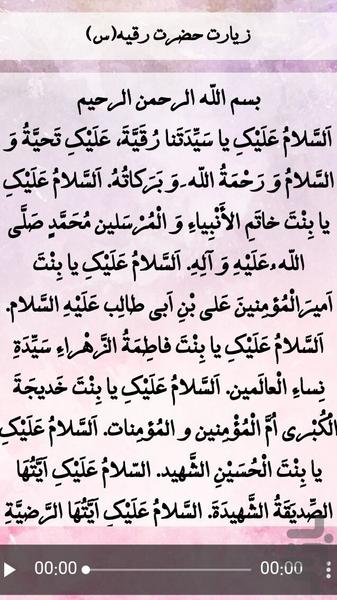 زیارت حضرت رقیه(س)
بسم اللّه الرحمن الرحیم
اَلسَّلامُ عَلَیْکِ یا سَیِّدَتَنا رُقَیَّةَ، عَلَیْکِ تَحیَّةُ وَ
السَّلامُ وَ رَحْمَةُ اللّه ِوَ بَرَکاتُهُ. اَلسَّلامُ عَلَیْکِ
یا بِنْتَ خاتَمِ الأَنْبِیاءِ وَ الْمُرْسَلین مُحَمَّدٍ صَلَّی
اللّه ُعَلَیْهِ وَ آلِهِ. اَلسَّلامُ عَلَیْکِ یا بِنْتَ
اَمیرَالْمُؤْمِنینَ عَلی بْنِ اَبی طالِب عَلَیْهِ السَّلام.
اَلسَّلامُ عَلَیْکِ یا بِنْتَ فاطِمَةُ الزَّهْراءِ سَیِّدَةِ
نِساءِ الْعالَمین. اَلسَّلامُ عَلَیْکِ یا بِنْتَ خَدیجَةَ
الْکُبْری اُمَّ الْمُؤْمِنین و المُؤمِنات. اَلسَّلامُ عَلَیْکِ
یا بِنْتَ الْحُسَیْنِ الشَّهید. السّلامُ عَلَیْکِ اَیَّتُهَا
الصِّدیقَةُ الشَّهیدَة. السَّلامُ عَلَیْکِ اَیَّتُهَا الرَّضیَّةِ
00:00 00:00